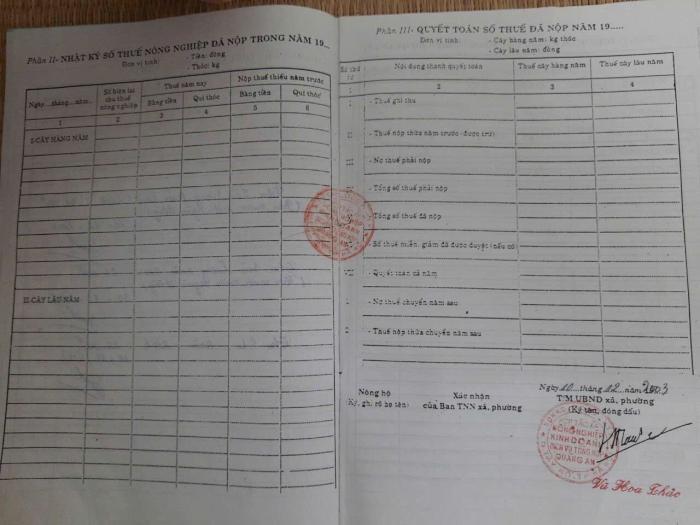 Phần II- NHẬT KÝ SỐ THUẾ NÔNG NGHIỆP ĐÃ NỘP TRONG NĂM 19...
Đơn vị tính: - Tiền: đồng
- Thóc: kg
Ngày...tháng...năm.
Số biên lai thu thuế nông nghiệp
Thuế năm nay
Nộp thuế thiếu năm trước
Bằng tiền
Qui thóc
Bằng tiền
Qui thóc
1 2 3 4 5 6
I-CÂY HÀNG NĂM
II-CÂY LÂU NĂM
Phần III- QUYẾT TOÁN SỐ THUẾ ĐÃ NỘP NĂM 19.....
Đơn vị tính: - Cây hàng năm: kg thóc
- Cây lâu năm: đồng
Số thứ tự
Nội dung thanh quyết toán
Thuế cây hàng năm
Thuế cây lâu năm
1 2 3 4
I - Thuế ghi thu
II - Thuế nộp thừa năm trước (được trừ)
III - Nợ thuế phải nộp
- Tổng số thuế phải nộp
- Tổng số thuế đã nộp
- Số thuế miễn, giảm đã được duyệt (nếu có)
- Quyết toán cả năm
1 - Nợ thuế chuyển năm sau
2 - Thuế nộp thừa chuyển năm sau
Ngày 10 tháng 12 năm 2003
Nông hộ
(Ký, ghi rõ họ tên)
Xác nhận
của Ban TNN xã, phường
T.M UBND xã, phường
(Ký tên, đóng dấu)
NÔNG NGHIỆP
KINH DOANH
DỊCH VỤ TỔNG HỢP
QUẢNG AN
Vũ Hoa Thảo